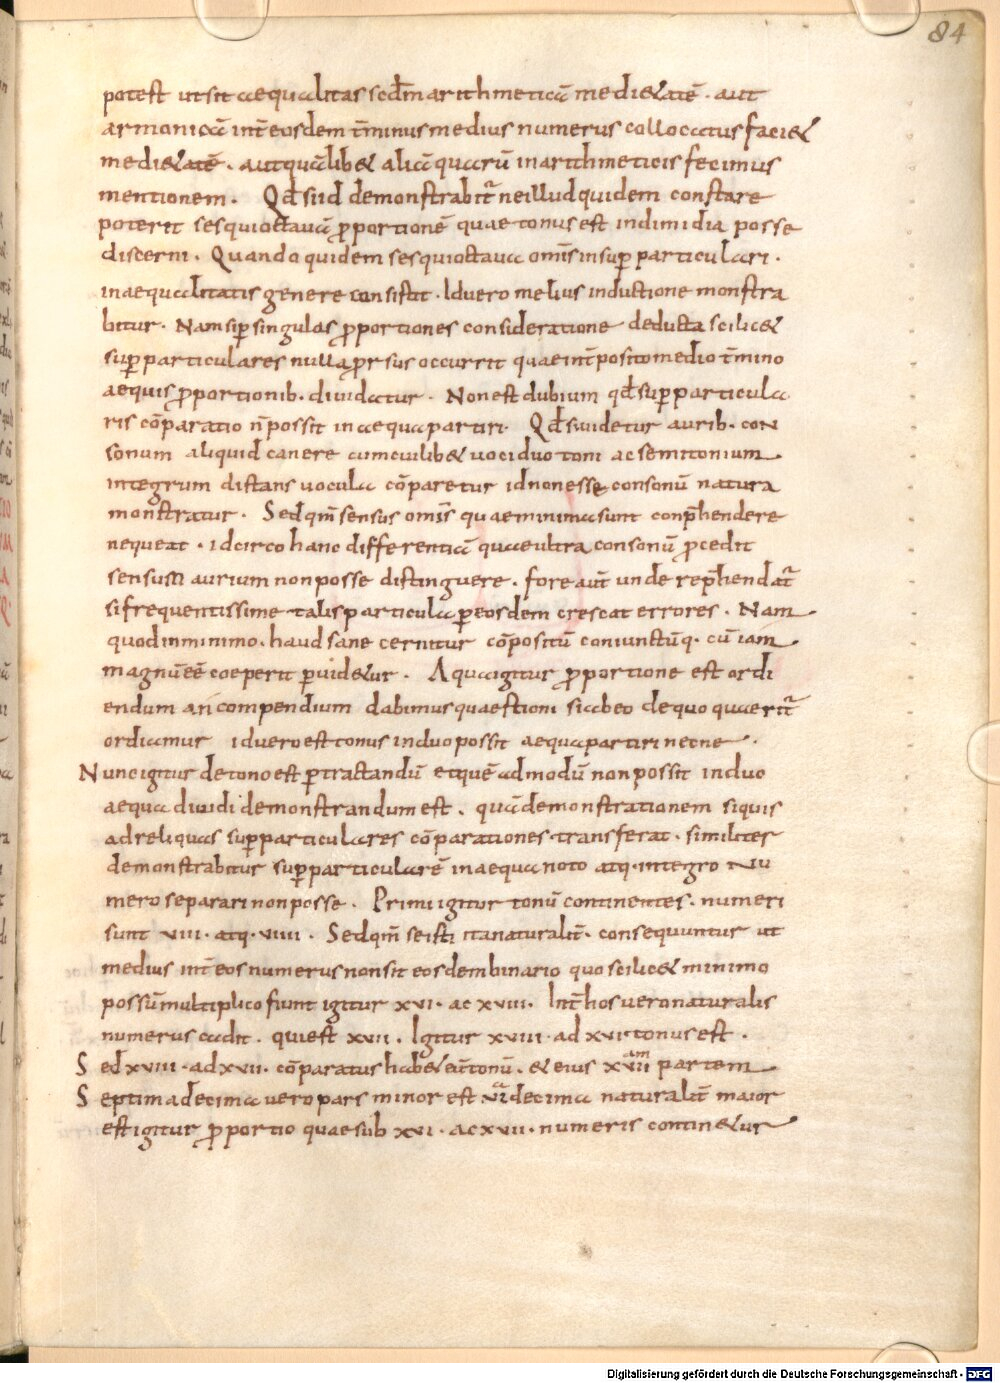 84
potest ut sit aequalitas sedm̄ arithmeticā medi&atē · aut
armonicā int̄ eosdem t̄minus medius numerus collocatus faci&
medi&atē · aut quālib& aliā quarū in arithmeticis fecimus
mentionem · Qđ si id demonstrabit̄ ne illud quidem constare
poterit sesquioctauā p̄portionē quae tonus est in dimidia posse
discerni · Quando quidem sesquioctaua omīs in sup̄particulari ·
inaequalitatis genere consistit · Id uero melius inductione monstra
bitur · Nam si p̄ singulas p̄portiones consideratione deducta scilic&
sup̄particulares nulla p̄rsus occurrit quae int̄posito medio t̄mino
aequis p̄portionib· diuidatur · Non est dubium qđ sup̄particula
ris cōparatio n̄ possit in aequa partiri · Qđ si uidetur aurib· con
sonum aliquid canere cum cuilib& uoci duo toni ac semitonium
integrum distans uocula cōparetur id non esse consonū natura
monstratur · Sed qm̄ sensus omīs quae minima sunt conp̄hendere
nequeat · idcirco hanc differentiā quae ultra consonū p̄cedit
sensum aurium non posse distinguere · fore aut̄ unde rep̄hendat̄
si frequentissime talis particula p̄ eosdem crescat errores · Nam
quod in minimo · haud sane cernitur cōpositū coniunctūq· cū iam
magnū eē coeperit p̄uid&ur · A qua igitur p̄portione est ordi
endum an compendium dabimus quaestioni si ab eo de quo quaerit̄
ordiamur id uero est tonus in duo possit aequa partiri necne ·
Nunc igitur de tono est p̄tractandū et quēadmodū non possit in duo
aequa diuidi demonstrandum est · quā demonstrationem siquis
ad reliquas sup̄particulares cōparationes transferat · similiter
demonstrabitur sup̄particularē in aequa noto atq· integro nu
mero separari non posse · Primi igitur tonū continentes · numeri
sunt VIII · atq· VIIII · Sed qm̄ se isti ita naturalit̄ · consequuntur ut
medius int̄ eos numerus non sit eosdem binario quo scilic& minimo
possū multiplico fiunt igitur XVI · ac XVIII · Int̄ hos uero naturalis
numerus cadit · qui est XVII · Igitur XVIII · ad XVI tonus est ·
Sed XVIII · ad XVII · cōparatus hab& eūtonū · & eius XVIIam partem
Septimadecima uero pars minor est VIadecima naturalit̄ maior
est igitur p̄portio quae sub XVI · ac XVII · numeris contin&ur
Digitalisierung gefördert durch die Deutsche Forschungsgemeinschaft - DFG